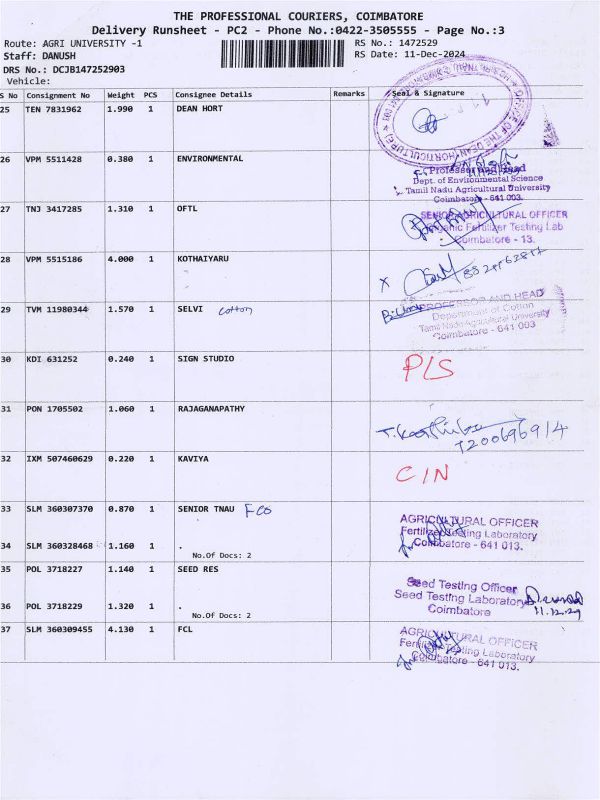 THE PROFESSIONAL COURIERS, COIMBATORE
Delivery Runsheet - PC2 - Phone No.:0422-3505555 - Page No.:3
Route: AGRI UNIVERSITY -1 RS No.: 1472529
Staff: DANUSH RS Date: 11-Dec-2024
DRS No.: DCJB147252903
Vehicle:
S No Consignment No Weight PCS Consignee Details Remarks Seal & Signature
25 TEN 7831962 1.990 1 DEAN HORT
OFFICE OF THE DEAN (HORTICULTURE)
26 VPM 5511428 0.380 1 ENVIRONMENTAL
Professor and Head
Dept. of Environmental Science
Tamil Nadu Agricultural University
Coimbatore- 641 003.
27 TNJ 3417285 1.310 1 OFTL
SENIOR AGRICULTURAL OFFICER
Organic Fertilizer Testing Lab
Coimbatore - 13.
28 VPM 5515186 4.000 1 KOTHAIYARU
X
29 TVM 11980344 1.570 1 SELVI cotton
PROFESSOR AND HEAD
Department of Cotton
Tamil Nadu Agricultural University
Coimbatore - 641 003
30 KDI 631252 0.240 1 SIGN STUDIO P/S
31 PON 1705502 1.060 1 RAJAGANAPATHY
7200696914
32 IXM 507460629 0.220 1 KAVIYA C/N
33 SLM 360307370 0.870 1 SENIOR TNAU FCO
AGRICULTURAL OFFICER
Fertilizer Testing Laboratory
Coimbatore - 641 013.
34 SLM 360328468 1.160 1 .
No.Of Docs: 2
35 POL 3718227 1.140 1 SEED RES
Seed Testing Officer
Seed Testing Laboratory
Coimbatore
36 POL 3718229 1.320 1 .
No.Of Docs: 2
37 SLM 360309455 4.130 1 FCL
AGRICULTURAL OFFICER
Fertilizer Testing Laboratory
Coimbatore - 641 013.